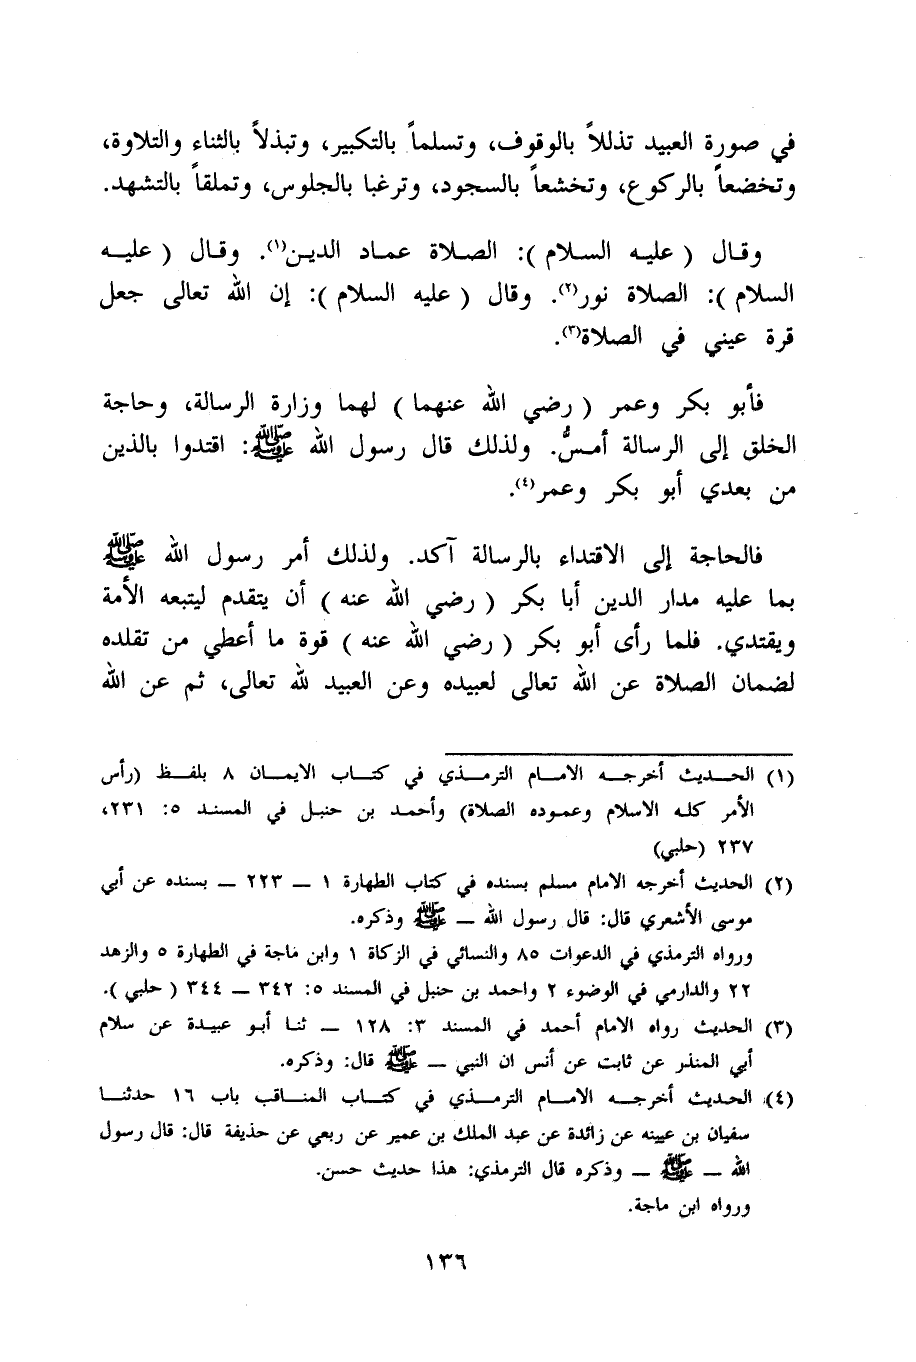 في صورة العبيد تذللاً بالوقوف، وتسلماً بالتكبير، وتبذلاً بالثناء والتلاوة،
وتخضعاً بالركوع، وتخشعاً بالسجود، وترغبا بالجلوس، وتملقاً بالتشهد.
وقال ( عليه السلام ): الصلاة عماد الدين(١). وقال ( عليه
السلام ): الصلاة نور(٢). وقال ( عليه السلام ): إن الله تعالى جعل
قرة عيني في الصلاة(٣).
فأبو بكر وعمر ( رضي الله عنهما ) لهما وزارة الرسالة، وحاجة
الخلق إلى الرسالة أمسُّ. ولذلك قال رسول الله ﷺ: اقتدوا بالذين
من بعدي أبو بكر وعمر(٤).
فالحاجة إلى الاقتداء بالرسالة آكد. ولذلك أمر رسول الله ﷺ
بما عليه مدار الدين أبا بكر ( رضي الله عنه ) أن يتقدم ليتبعه الأمة
ويقتدي. فلما رأى أبو بكر ( رضي الله عنه ) قوة ما أعطي من تقلده
لضمان الصلاة عن الله تعالى لعبيده وعن العبيد لله تعالى، ثم عن الله
(١) الحديث أخرجه الامام الترمذي في كتاب الايمان ٨ بلفظ (رأس
الأمر كله الاسلام وعموده الصلاة) وأحمد بن حنبل في المسند ٥: ٢٣١،
٢٣٧ (حلبي)
(٢) الحديث أخرجه الامام مسلم بسنده في كتاب الطهارة ١ ـ ٢٢٣ ـ بسنده عن أبي
موسى الأشعري قال: قال رسول الله ـ ﷺ وذكره.
ورواه الترمذي في الدعوات ٨٥ والنسائي في الزكاة ١ وابن ماجة في الطهارة ٥ والزهد
٢٢ والدارمي في الوضوء ٢ واحمد بن حنبل في المسند ٥: ٣٤٢ ـ ٣٤٤ ( حلبي ).
(٣) الحديث رواه الامام أحمد في المسند ٣: ١٢٨ ـ ثنا أبو عبيدة عن سلام
أبي المنذر عن ثابت عن أنس ان النبي ـ ﷺ قال: وذكره.
(٤) الحديث أخرجه الامام الترمذي في كتاب المناقب باب ١٦ حدثنا
سفيان بن عيينه عن زائدة عن عبد الملك بن عمير عن ربعي عن حذيفة قال: قال رسول
الله ـ ﷺ ـ وذكره قال الترمذي: هذا حديث حسن.
ورواه ابن ماجة.
١٣٦